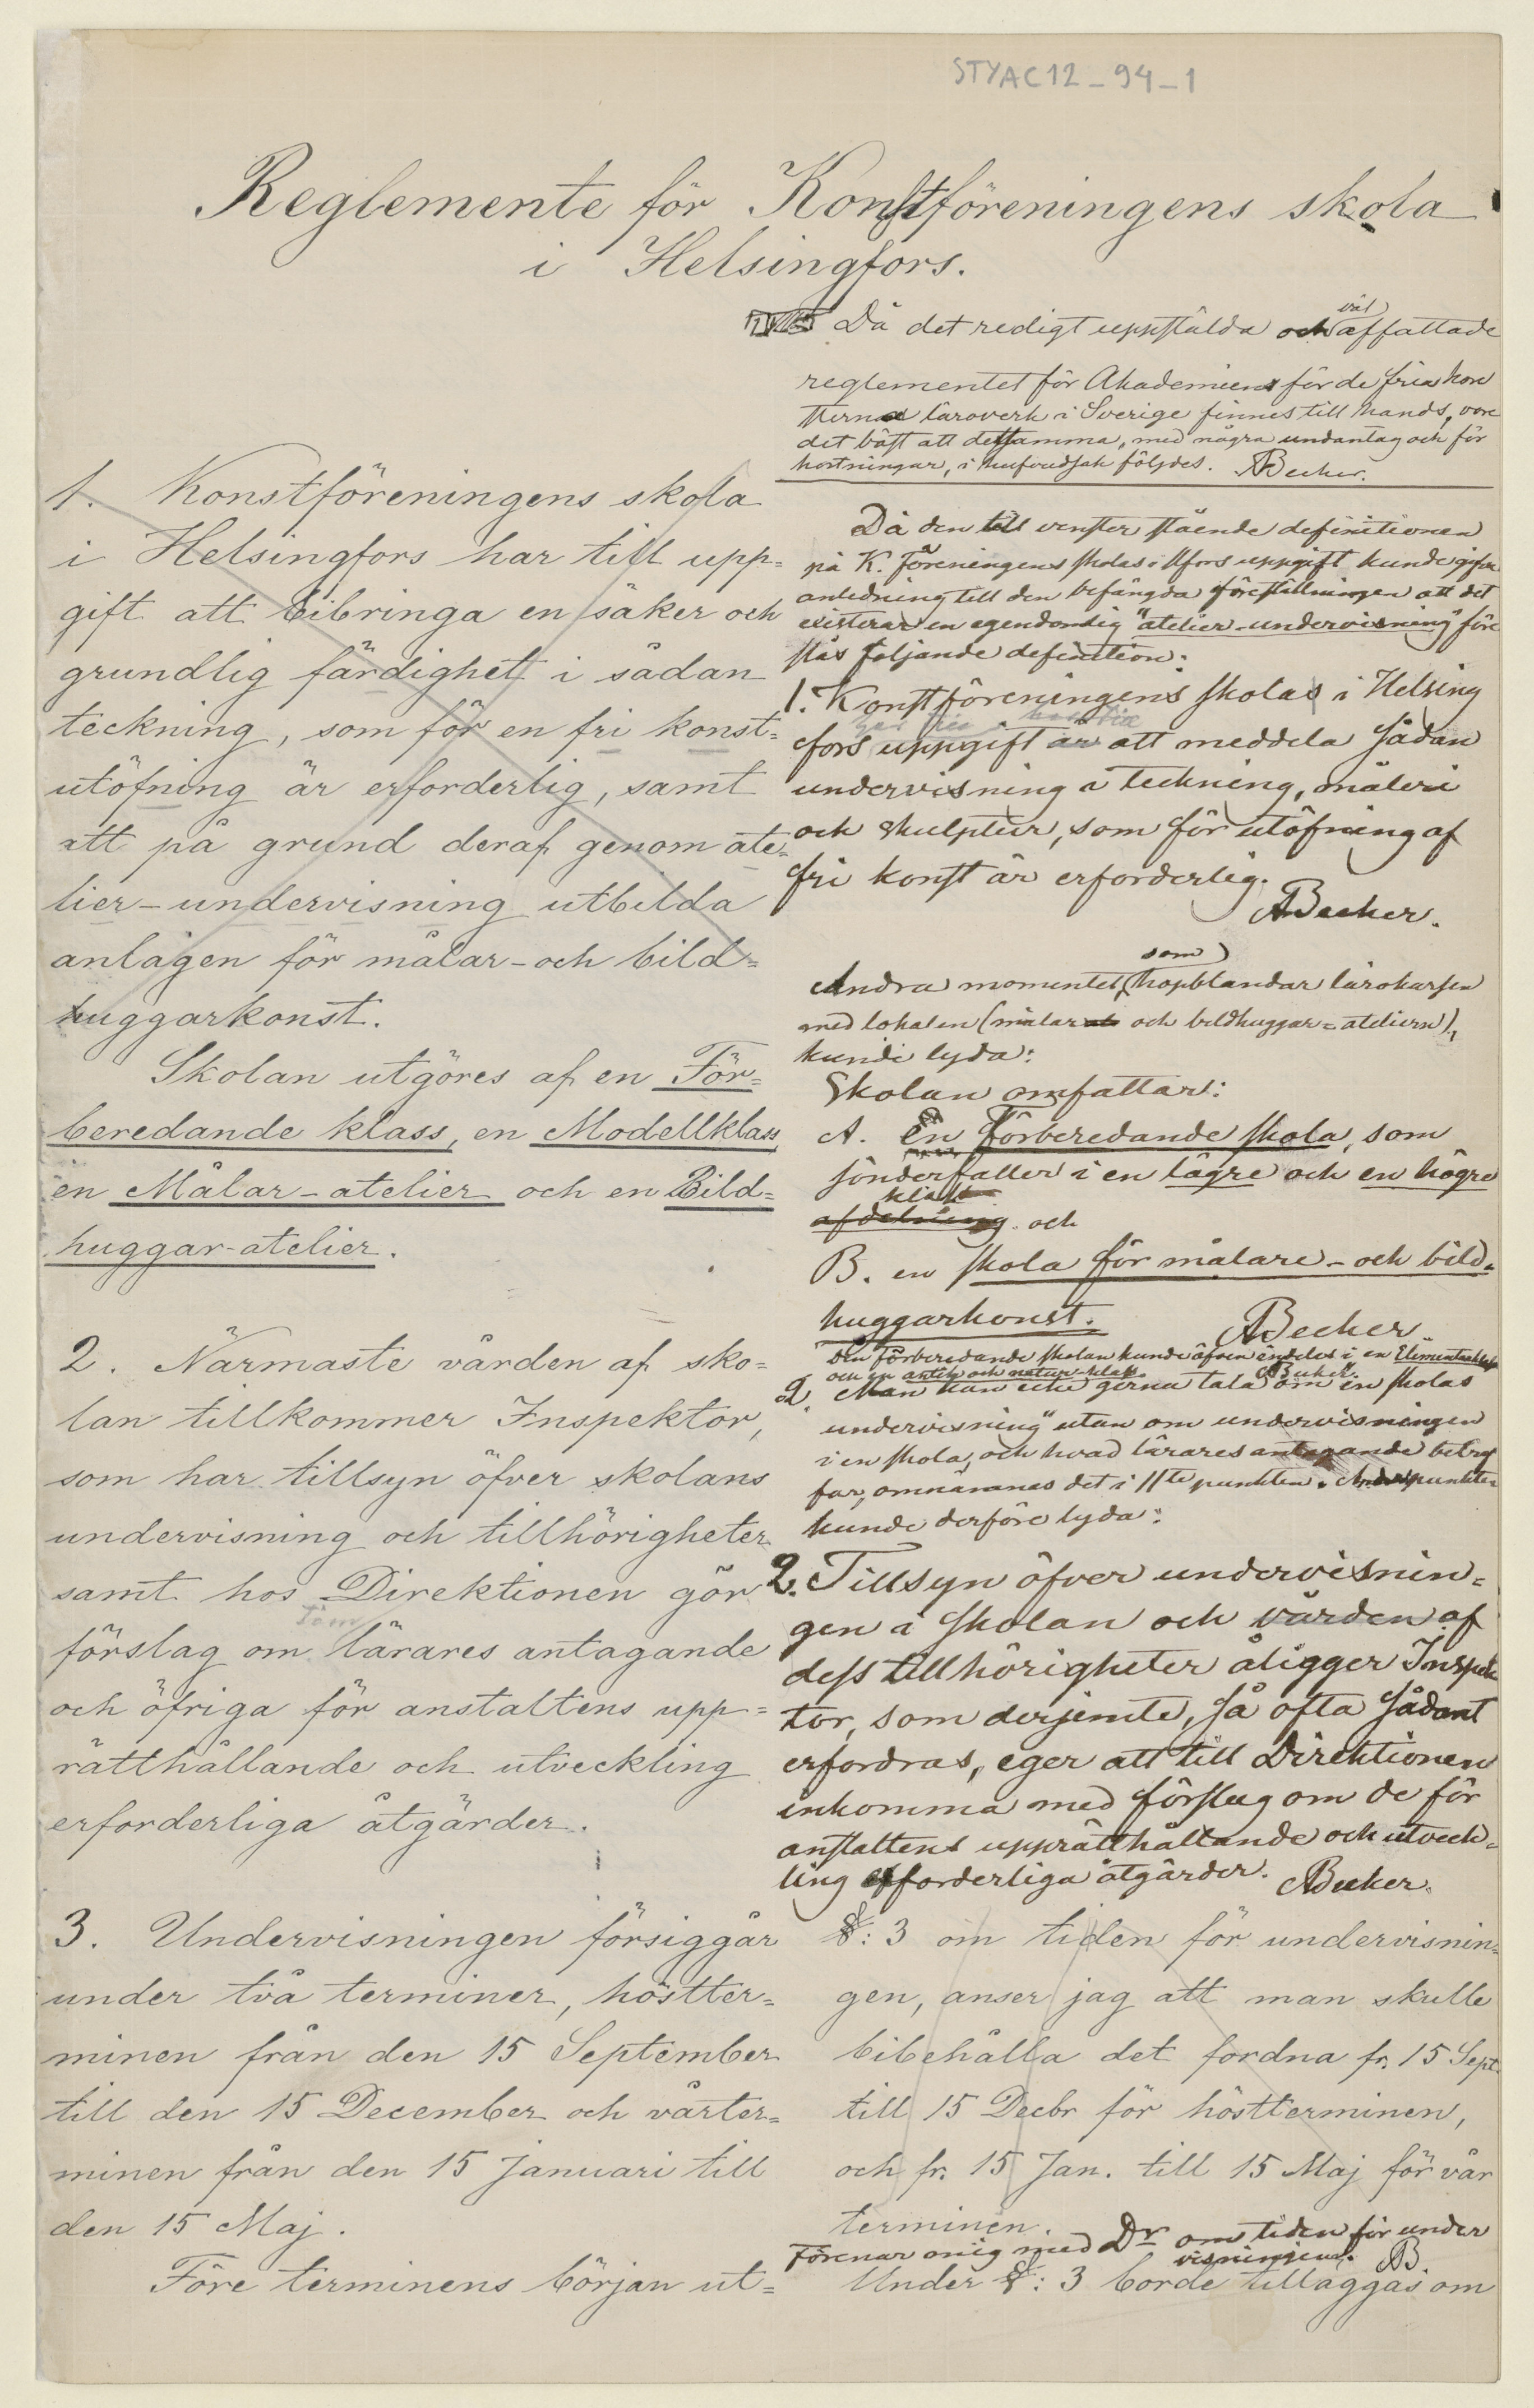 STYAC12_94_1
Reglemente för Konstföreningens skola
i Helsingfors.
1. Konstföreningens skola
i Helsingfors har till upp=
gift att bibringa en säker och
grundlig färdighet i sådan
teckning, som för en fri konst=
utöfning är erforderlig, samt
att på grund deraf genom ate=
lier-undervisning utbilda
anlagen för målar-och bild=
huggarkonst.
Skolan utgöres af en För=
beredande klass, en Modellklass,
en Målar-atelier och en Bild=
huggar-atelier.
2. Närmaste vården af sko=
lan tillkommer Inspektor,
som har tillsyn öfver skolans
undervisning och tillhörigheter
samt hos Direktionen gör
förslag om lärares antagande
och öfriga för anstaltens upp=
rätthållande och utveckling
erforderliga åtgärder.
3. Undervisningen försiggår
under två terminer, höstter=
minen från den 15 September
till den 15 December och vårter=
minen från den 15 Januari till
den 15 Maj.
Före terminens början ut=
Då det redigt uppstälda och väl affattade
reglementet för Akademiens för de fria kon
sterna läroverk i Sverige finnes till hands, vore
det bäst att detsamma, med några undantag och för
kortningar, i hufvudsak följdes. ABecker.
Då den till venster stående definitionen
på K. Föreningens skolas i Hfors uppgift kunde gifva
anledning till den befängda föreställningen att det
existerar en egendomlig "atelier-undervisning" före
slås följande definition:
1. Konstföreningens skolas i Helsing
fors uppgift är att meddela sådan
undervisning i teckning, måleri
och skulptur, som för utöfning af
fri konst är erforderlig.
ABecker.
Andra momentet, som hopblandar lärokursen
med lokalen (målar och bildhuggar=ateliern),
kunde lyda:
Skolan omfattar:
A. En Förberedande skola, som
sönderfaller i en lägre och en högre
klass
afdelning. och
B. en skola för målare-och bild=
huggarkonst. ABecker
Den förberedande skolan kunde äfven indelas i en Elementarklass
och en antik och natur-klass. ABecker.
2. Man kan icke gerna tala om "en skolas
undervisning" utan om undervisningen
i en skola, och hvad lärares antagande beträf
far, omnämnes det i 11te punkten. Andra punkten
kunde derföre lyda:
2. Tillsyn öfver undervisnin=
gen i skolan och vården af
dess tillhörigheter åligger Inspek
tor, som derjemte, så ofta sådant
erfordras, eger att till Direktionen
inkomma med förslag om de för
anstaltens upprätthållande och utveck=
ling erforderliga åtgärder. ABecker.
§: 3 om tiden för undervisnin=
gen, anser jag att man skulle
bibehålla det fordna fr. 15 Sept.
till 15 Decbr för höstterminen,
och fr. 15 Jan. till 15 Maj för vår
terminen.
Förenar mig med Dr om tiden för under
visningen. AB.
Under §: 3 borde tilläggas om